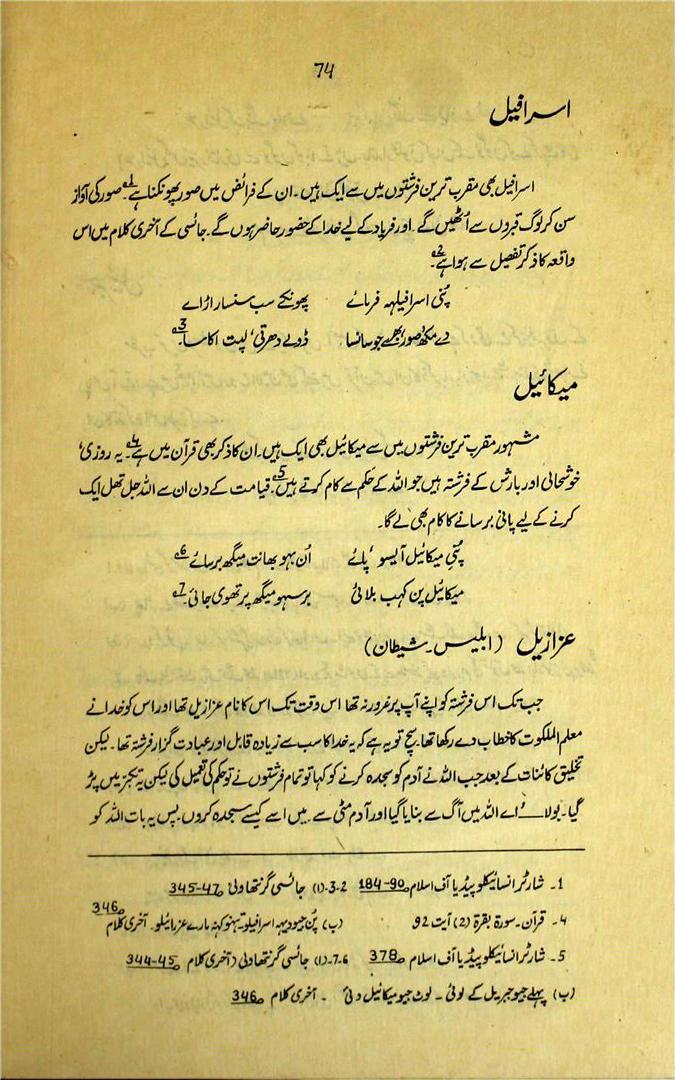 74
اسرافیل
اسرافیل بھی مقرب ترین فرشتوں میں سے ایک ہیں۔ ان کے فرائض میں صور پھونکنا ہے۔1 صور کی آواز
سن کر لوگ قبروں سے اُٹھیں گے۔ اور فریاد کے لیے خدا کے حضور حاضر ہوں گے۔ جائسی کے آخری کلام میں اس
واقعہ کا ذکر تفصیل سے ہوا ہے۔2
پُنی اسرافیلہہ فرمائے پھونکے سب سنسار اڑاے
دے مکھ صور بھیے جو سانسا ڈولے دھرتی، لپت اکاسا۔3
میکائیل
مشہور مقرب ترین فرشتوں میں سے میکائیل بھی ایک ہیں۔ ان کا ذکر بھی قرآن میں ہے۔4 یہ روزی،
خوشحالی اور بارش کے فرشتہ ہیں جو اللہ کے حکم سے کام کرتے ہیں۔5 قیامت کے دن ان سے اللہ جل تھل ایک
کرنے کے لیے پانی برسانے کا کام بھی لے گا۔
پُنی میکائیل آیسو، پائے اُن بہو بھانت میگھ برسائے۔6
میکائیل پن کہب بلائی برسہو میگھ پرتھوی جائی۔7
عزازیل (ابلیس۔ شیطان)
جب تک اس فرشتہ کو اپنے آپ پر غرور نہ تھا اس وقت تک اس کا نام عزازیل تھا اور اس کو خدا نے
معلم الملکوت کا خطاب دے رکھا تھا۔ سچ تو یہ ہے کہ یہ خدا کا سب سے زیادہ قابل اور عبادت گزار فرشتہ تھا۔ لیکن
تخلیق کائنات کے بعد جب اللہ نے آدم کو سجدہ کرنے کو کہا تو تمام فرشتوں نے تو حکم کی تعمیل کی لیکن یہ تکبّر میں پڑ
گیا۔ بولا ــــ اے اللہ میں آگ سے بنایا گیا اور آدم مٹی سے۔ میں اسے کیسے سجدہ کروں۔ پس یہ بات اللہ کو
1۔ شارٹر انسائیکلوپیڈیا آف اسلام 184-90 2-3۔(1) جائسی گرنتھاولی 345-47
4۔ قرآن۔ سورۃ بقرۃ (2) آیت 92 (ب) پُن جیو دیہہ اسرافیلو تہنہو کہنہ مارے عزرائیلو۔ آخری کلام 346
5۔ شارٹر انسائیکلوپیڈیا آف اسلام 378 6-7۔(1) جائسی گرنتھاولی (آخری کلام 344-45
(ب) پہلے جیو جبریل کے لوئی۔ لوٹ جیو میکائیل دئی ۔ آخری کلام 346